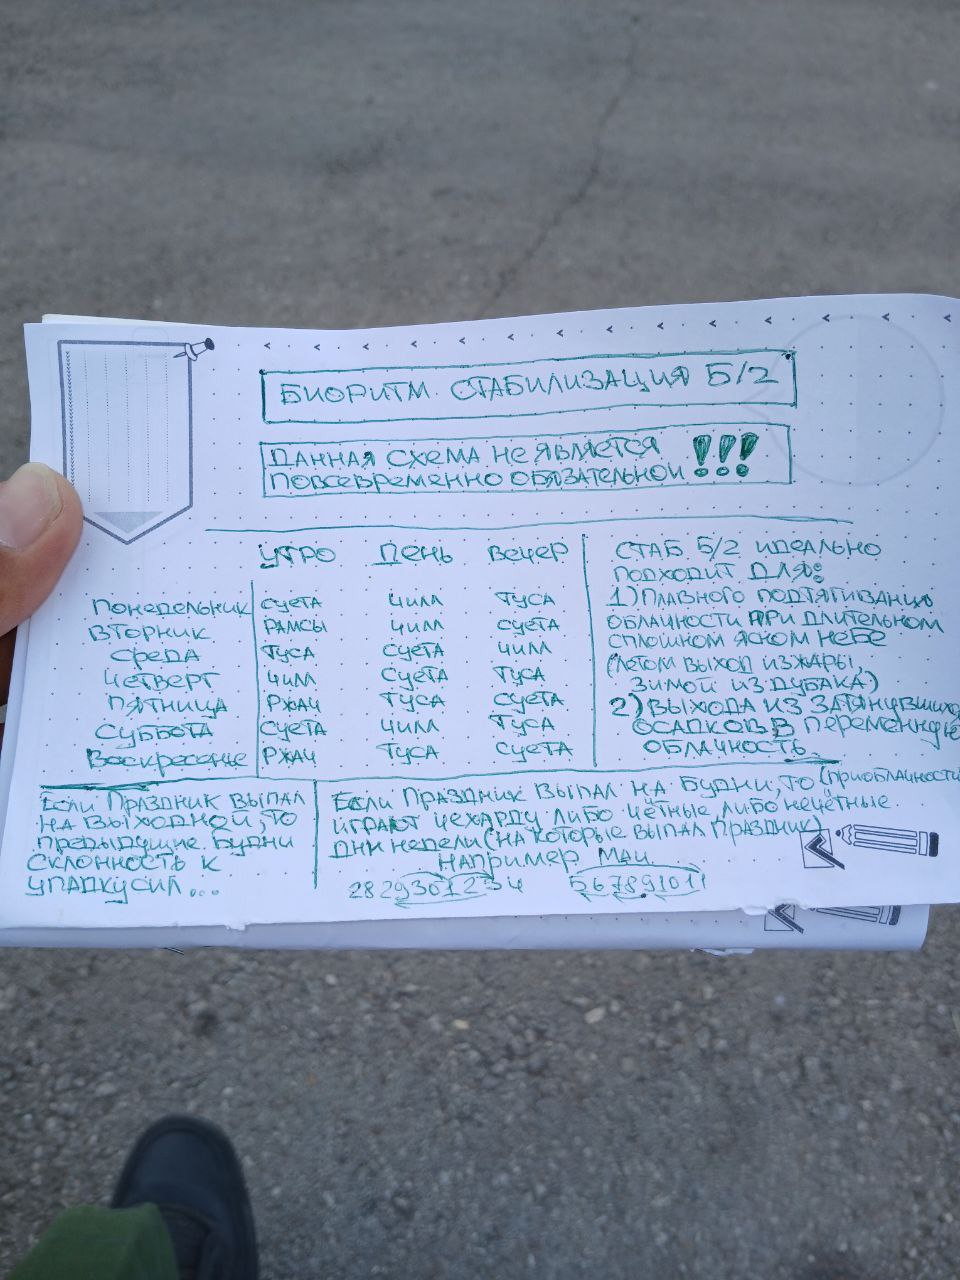 БИОРИТМ. СТАБИЛИЗАЦИЯ Б/2
ДАННАЯ СХЕМА НЕ ЯВЛЯЕТСЯ
ПОВСЕВРЕМЕННО ОБЯЗАТЕЛЬНОЙ !!!
УТРО ДЕНЬ ВЕЧЕР
ПОНЕДЕЛЬНИК СУЕТА ЧИЛЛ ТУСА
ВТОРНИК РАМСЫ ЧИЛЛ СУЕТА
СРЕДА ТУСА СУЕТА ЧИЛЛ
ЧЕТВЕРГ ЧИЛЛ СУЕТА ТУСА
ПЯТНИЦА РЖАЧ ТУСА СУЕТА
СУББОТА СУЕТА ЧИЛЛ ТУСА
ВОСКРЕСЕНЬЕ РЖАЧ ТУСА СУЕТА
СТАБ Б/2 ИДЕАЛЬНО
ПОДХОДИТ ДЛЯ:
1) ПЛАВНОГО ПОДТЯГИВАНИЯ
ОБЛАЧНОСТИ ПРИ ДЛИТЕЛЬНОМ
СПЛОШНОМ ЯСНОМ НЕБЕ
(ЛЕТОМ ВЫХОД ИЗ ЖАРЫ,
ЗИМОЙ ИЗ ДУБАКА)
2) ВЫХОДА ИЗ ЗАТЯНУВШИХСЯ
ОСАДКОВ В ПЕРЕМЕННУЮ
ОБЛАЧНОСТЬ.
ЕСЛИ ПРАЗДНИК ВЫПАЛ
НА ВЫХОДНОЙ, ТО
ПРЕДЫДУЩИЕ БУДНИ
СКЛОННОСТЬ К
УПАДКУ СИЛ...
ЕСЛИ ПРАЗДНИК ВЫПАЛ НА БУДНИ, ТО (ПРИ ОБЛАЧНОСТИ)
ИГРАЮТ ЧЕХАРДУ ЛИБО ЧЁТНЫЕ, ЛИБО НЕЧЁТНЫЕ
ДНИ НЕДЕЛИ (НА КОТОРЫЕ ВЫПАЛ ПРАЗДНИК)
НАПРИМЕР МАЙ.
28 29 30 1 2 3 4 5 6 7 8 9 10 11